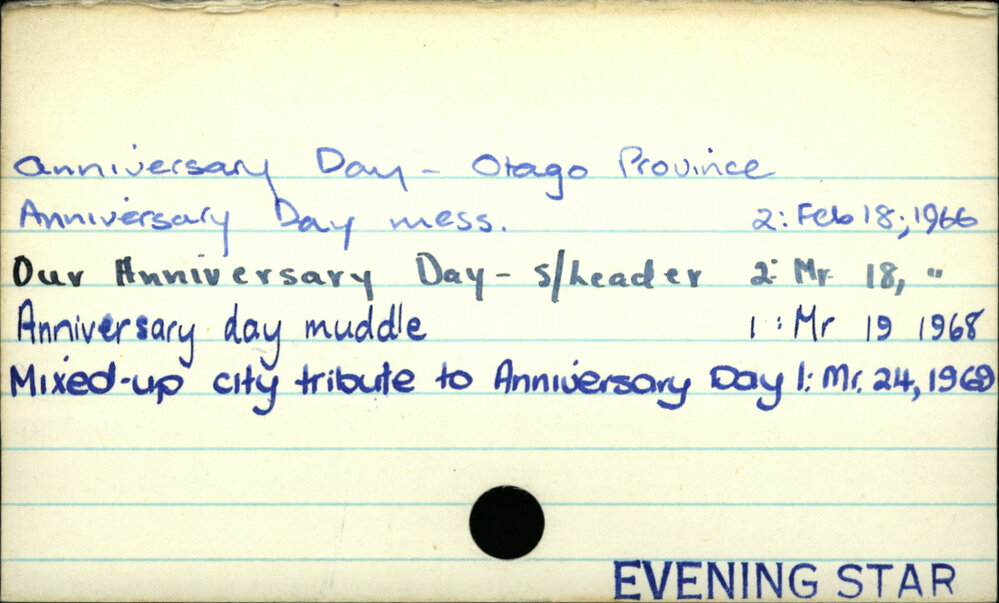 Anniversary Day - Otago Province
Anniversary Day mess. 2: Feb 18; 1966
Our Anniversary Day - s/leader 2: Mr 18, "
Anniversary day muddle 1: Mr 19 1968
Mixed-up city tribute to Anniversary Day 1: Mr. 24, 1969
EVENING STAR